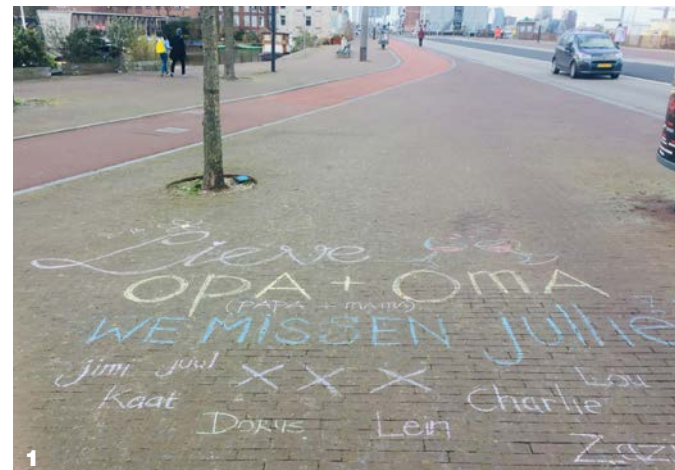 Lieve
OPA + OMA
(PAPA + MAMA)
WE MISSEN jullie
jimi juul XXX Lou
Kaat Charlie
Dorus Lein
Zazi
1